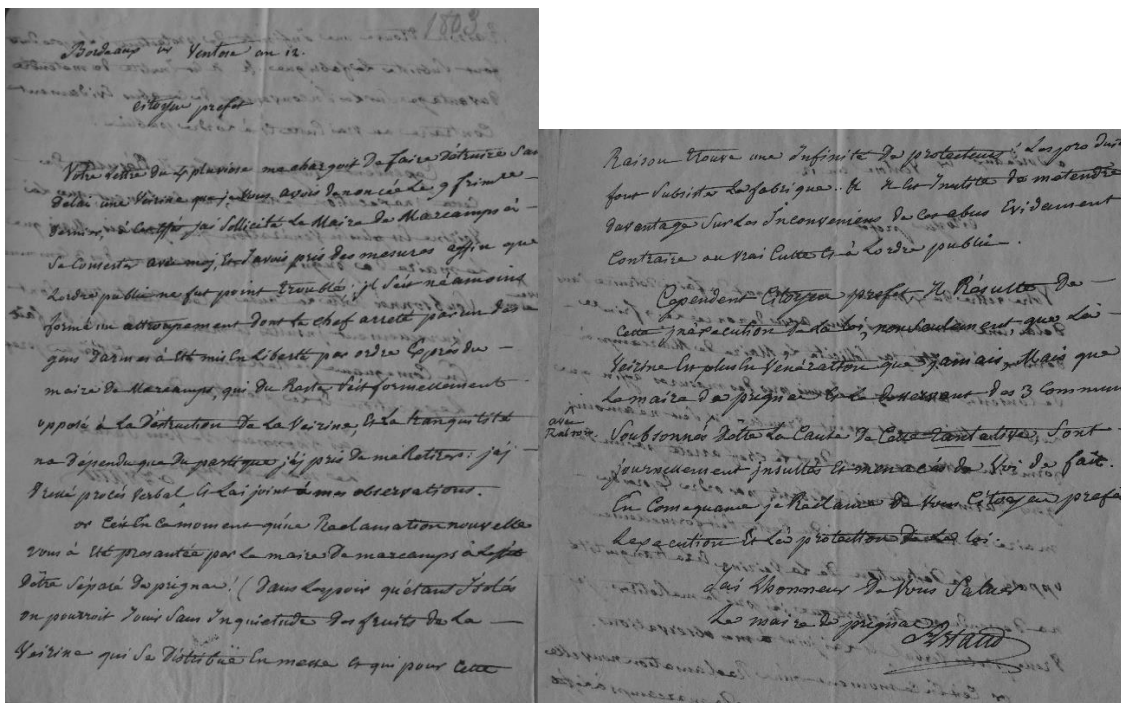 1803
Bordeaux ventose an 12.
Citoyen prefet
Votre lettre du 4 pluviose me chargoit de faire détruire San
Délai une Veirine que je Vous avois denoncée Le 9 frimre
dernier, à Cet effet j'ai Sollicité Le Maire de Marcamps à
Se Conserter avec moj, et j'avois pris des mesures affin que
Lordre public ne fut point troublé; jl s'est néamoins
formé un attroupement dont le chef arreté par un des
gens darmes à Eté mis En Liberté par ordre Exprès du
maire de Marcamps, qui du Reste s'est formellement
opposé à La Destruction de La Veirine, Et La tranquilité
na dépendu que du parti que j'aj pris de me Retirer: j'aj
Dressé procès verbal Et L'ai joint à mes observations.
or C'est En Ce moment qu'une Reclamation nouvelle
vous à Eté presantée par Le maire de marcamps à Leffet
Dêtre Séparé de prignac! (Dans Lespoir qu'étant Isolés
on pourroit Jouir Sans Inquietude des fruits de La
Veirine qui Se Distribuë En messe Et qui pour Cette
Raison trouve une Infinité De protecteurs; Les produits
font Subsister La fabrique. Et Il Est Inutile de m'etendre
davantage Sur Les Inconveniens de Ces abus Evidament
Contraire au vrai Culte Et à Lordre public.
Cependent Citoyen prefet, Il Résulte De
Cette jnéxécution de La Loi, non Seulement que La
Veirine Est plus En Vénération que jamais, Mais que
Le maire de prignac Et Le Desservent des 3 Commun
avec
Raison
Soubsonnés d'être La Cause de Cette tantative, Sont
journellement jnsultés Et menacés de Voi de fait.
En Consequance je Réclame de Vous Citoyen prefet
Lexecution Et La protection de La Loi.
Jai Lhonneur De Vous Saluer
Le maire de prignac